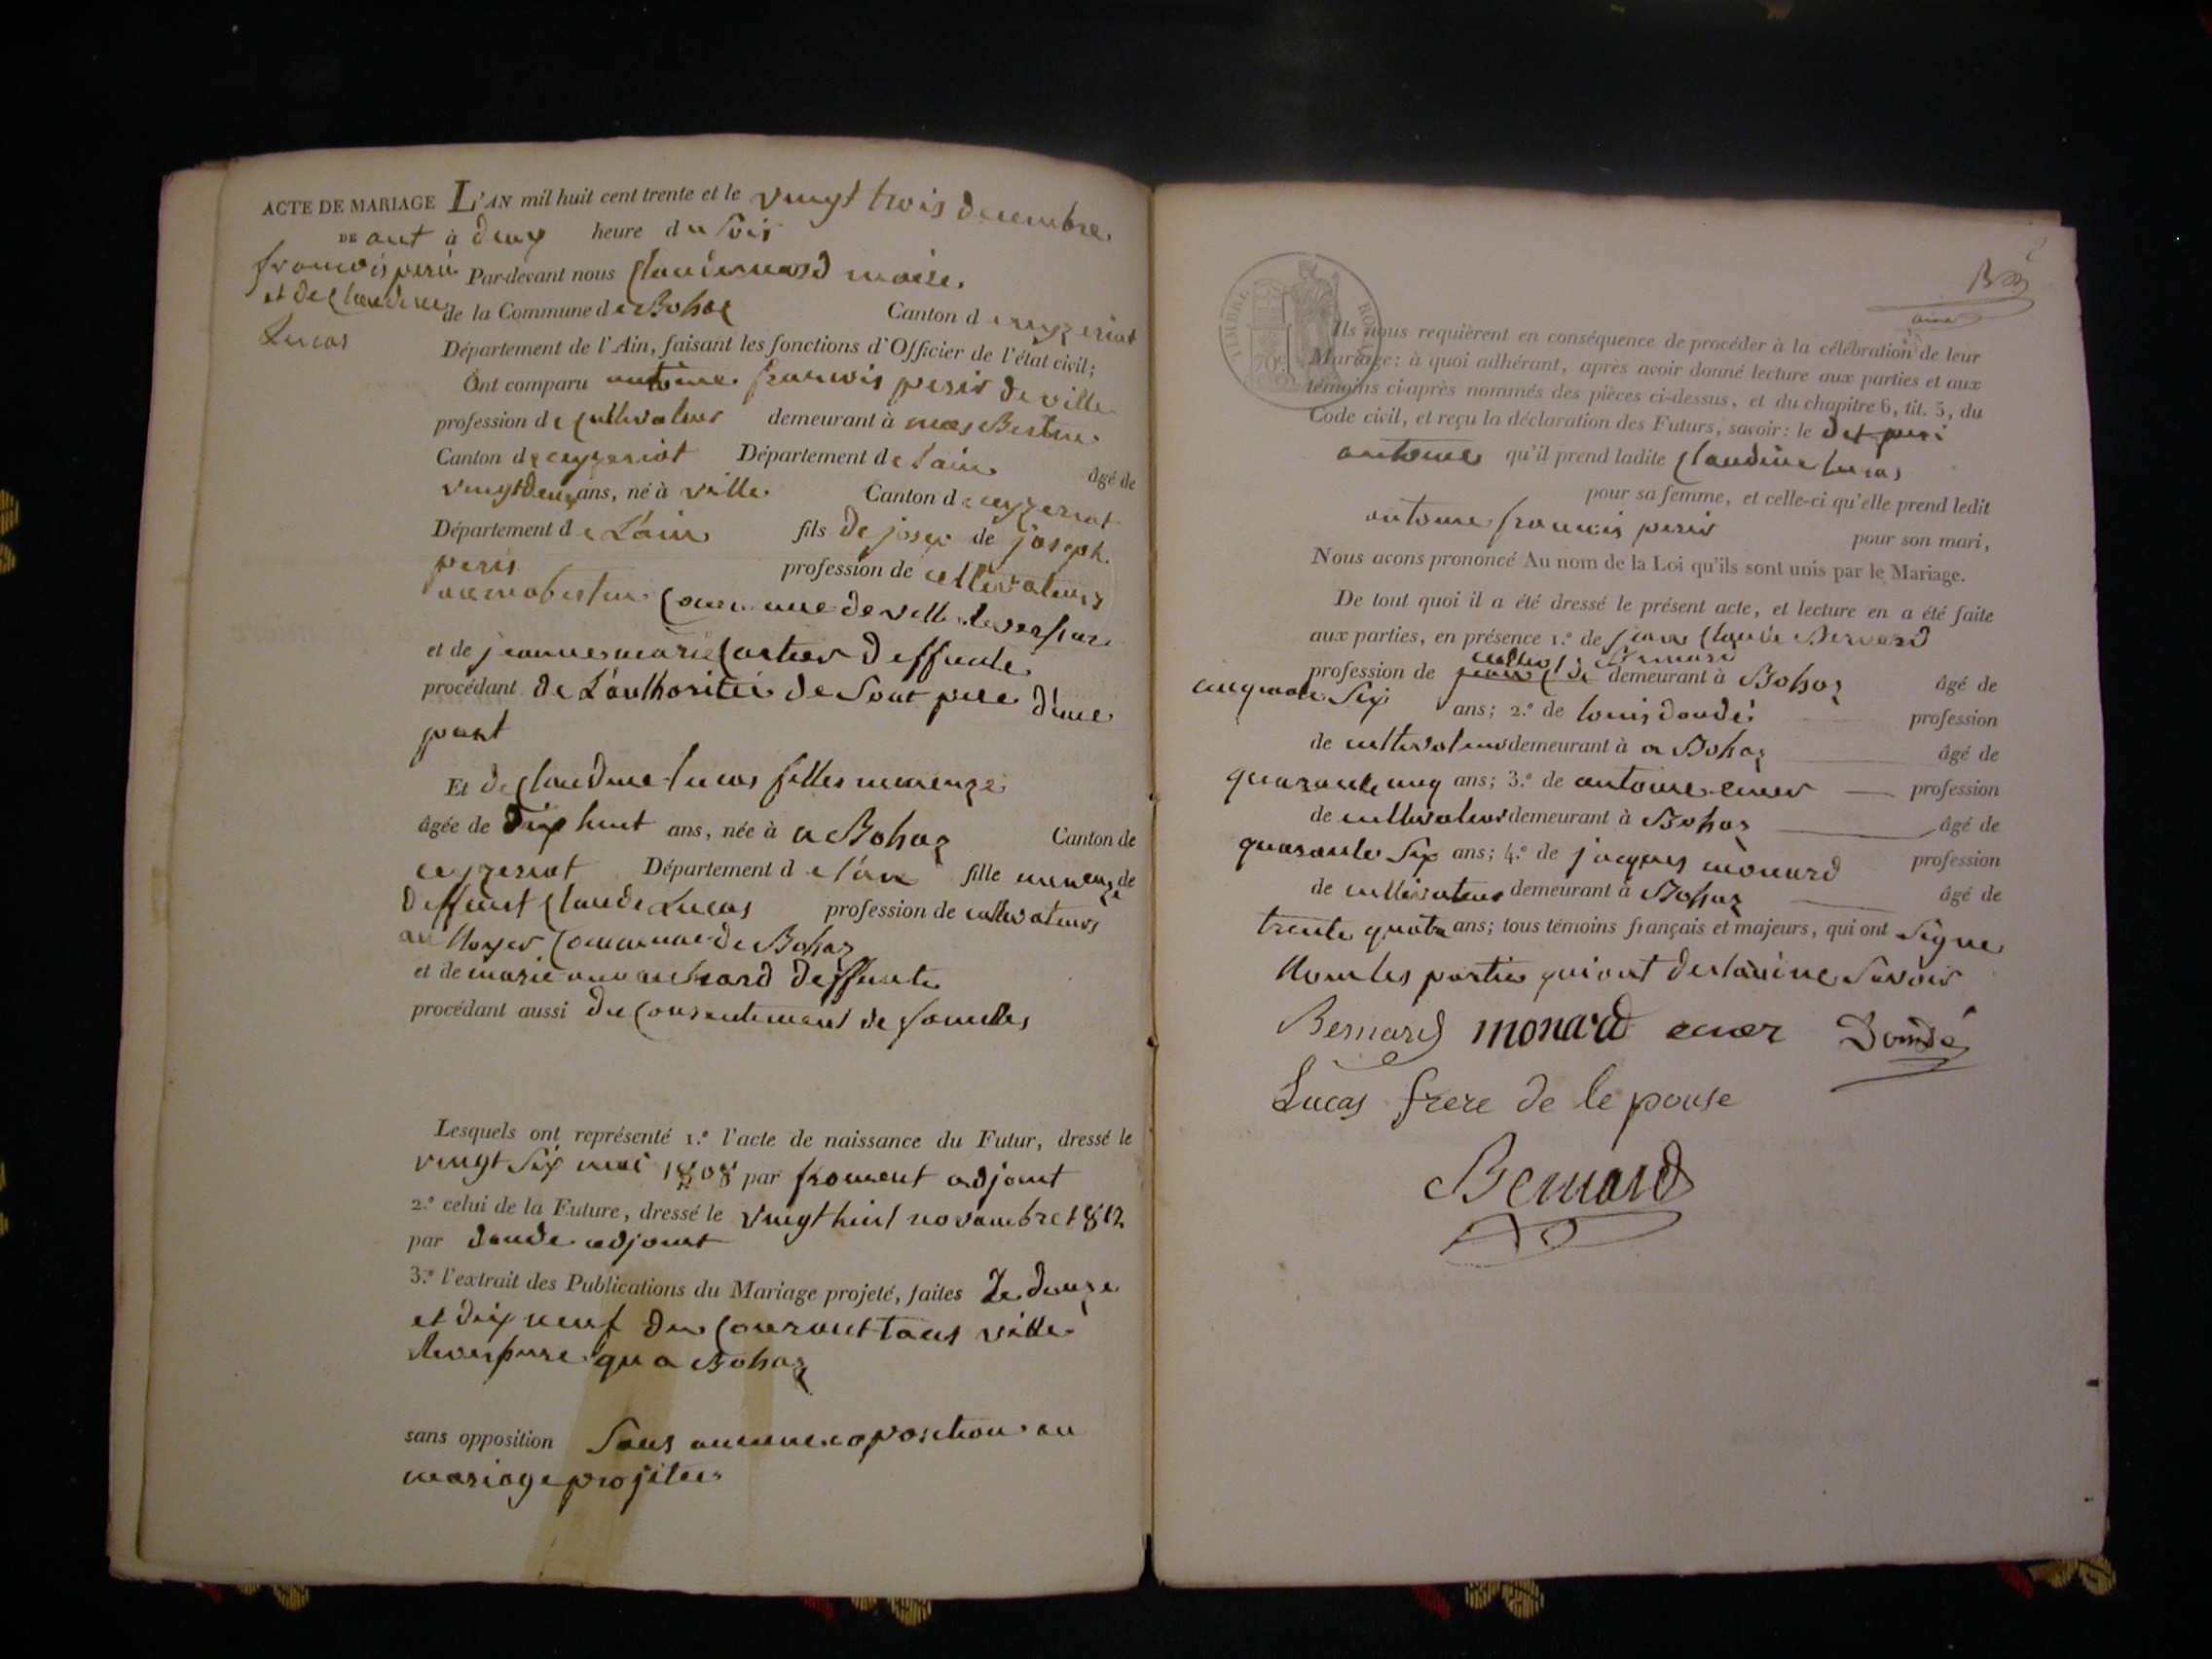 ACTE DE MARIAGE L'AN mil huit cent trente et le vingt trois decembre
DE ant à deux heure du soir
francois peris Par-devant nous Claude Bernard maire
et de Claudine de la Commune de Bohaz Canton de ceyzeriat
Lucas
Département de l'Ain, faisant les fonctions d'Officier de l'état civil;
Ont comparu antoine francois peris de ville
profession de cultivateur demeurant à mas Bertin
Canton de ceyzeriat Département de lain âgé de
vingt deux ans, né à ville Canton de ceyzeriat
Département de Lain fils de josep de joseph
peris profession de cultivateurs
Commune de ville reversure
et de jeanne marie Cartier deffunte
procédant de L'authoritée de sont pere d'une
part
Et de Claudine Lucas filles mineuze
âgée de dix huit ans, née à a Bohaz Canton de
ceyzeriat Département de l'ain fille mineuze de
deffunt Claude Lucas profession de cultivateurs
au Noyer Commune de Bohaz
et de marie deffunte
procédant aussi du Consentement de familles
Lesquels ont représenté 1.º l'acte de naissance du Futur, dressé le
vingt six mai 1808 par froment adjoint
2.º celui de la Future, dressé le vingt huit novambre 1812
par dondé adjoint
3.º l'extrait des Publications du Mariage projeté, faites Le douze
et dix neuf du Courant tans ville
Reversure qu a Bohaz
sans opposition Sans aucune oposition au
mariage projitée
Ils nous requièrent en conséquence de procéder à la célébration de leur
Mariage: à quoi adhérant, après avoir donné lecture aux parties et aux
témoins ci-après nommés des pièces ci-dessus, et du chapitre 6, tit. 5, du
Code civil, et reçu la déclaration des Futurs, savoir: le dit peri
antoine qu'il prend ladite Claudine lucas
pour sa femme, et celle-ci qu'elle prend ledit
antoine francois peris pour son mari,
Nous avons prononcé Au nom de la Loi qu'ils sont unis par le Mariage.
De tout quoi il a été dressé le présent acte, et lecture en a été faite
aux parties, en présence 1.º de jean Claude Bernard
profession de demeurant à Bohaz âgé de
cinquante six ans; 2.º de louis dondé profession
de cultivateur demeurant à a Bohaz âgé de
quarante cinq ans; 3.º de antoine profession
de cultivateur demeurant à Bohaz âgé de
quarante six ans; 4.º de jacques monard profession
de cultivateur demeurant à Bohaz âgé de
trente quatre ans; tous témoins français et majeurs, qui ont signe
Non les partie qui ont declarè ne savoir
Bernard monard Dondé
Lucas frere de le pouse
Bernard